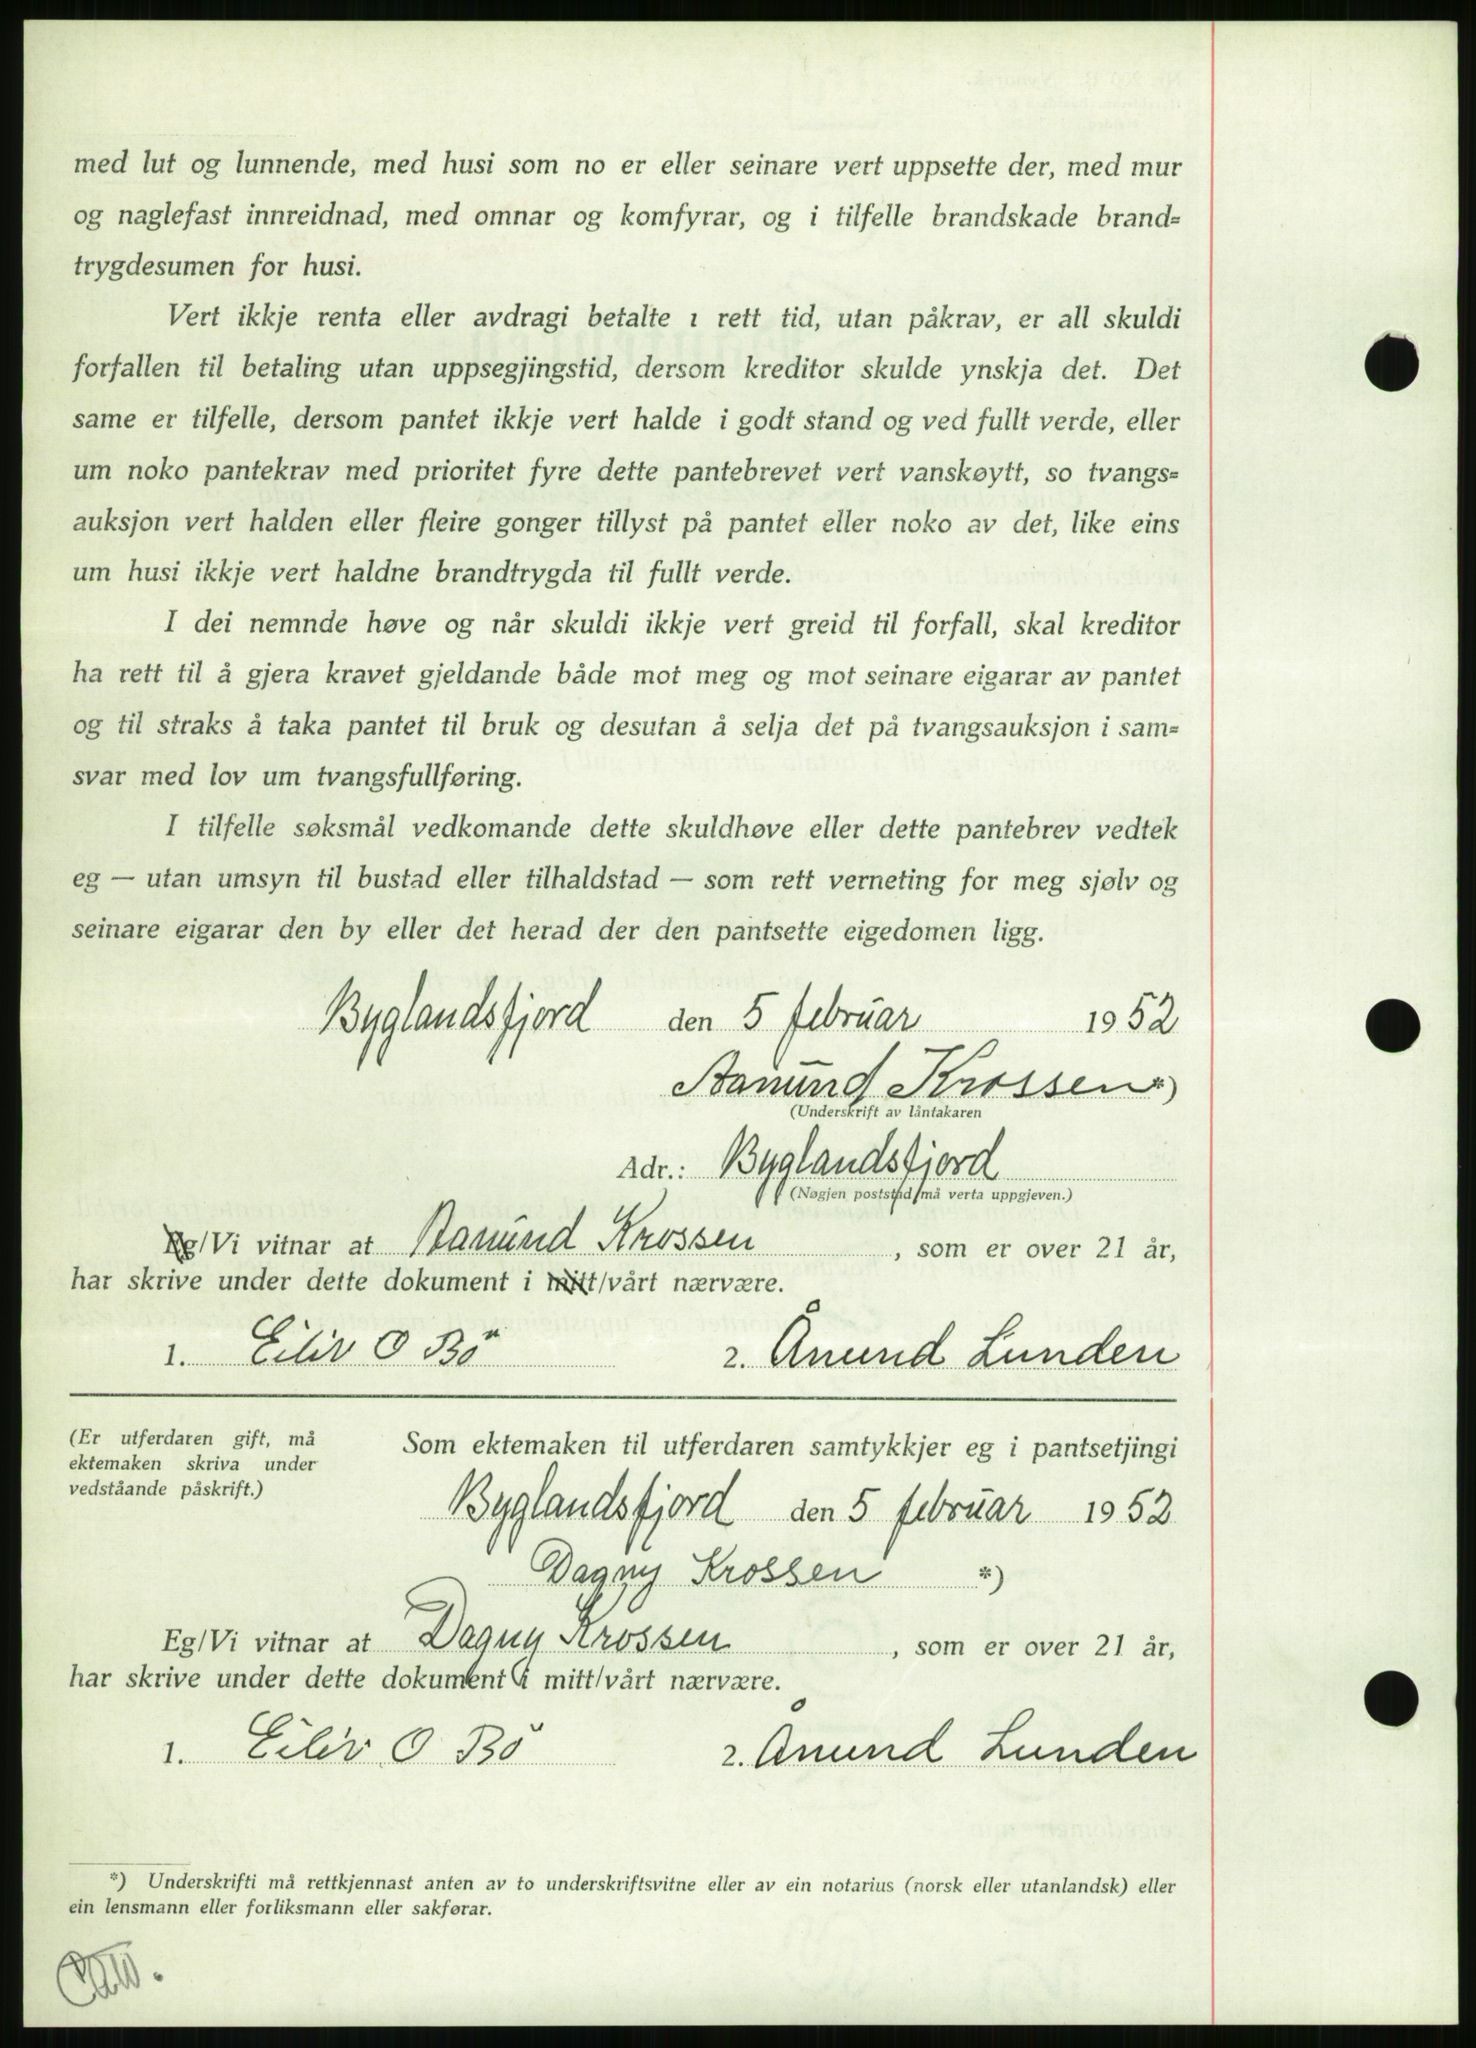 med lut og lunnende, med husi som no er eller seinare vert uppsette der, med mur
og naglefast innreidnad, med omnar og komfyrar, og i tilfelle brandskade brand=
trygdesumen for husi.
Vert ikkje renta eller avdragi betalte i rett tid, utan påkrav, er all skuldi
forfallen til betaling utan uppsegjingstid, dersom kreditor skulde ynskja det. Det
same er tilfelle, dersom pantet ikkje vert halde i godt stand og ved fullt verde, eller
um noko pantekrav med prioritet fyre dette pantebrevet vert vanskøytt, so tvangs=
auksjon vert halden eller fleire gonger tillyst på pantet eller noko av det, like eins
um husi ikkje vert haldne brandtrygda til fullt verde.
I dei nemnde høve og når skuldi ikkje vert greid til forfall, skal kreditor
ha rett til å gjera kravet gjeldande både mot meg og mot seinare eigarar av pantet
og til straks å taka pantet til bruk og desutan å selja det på tvangsauksjon i sam=
svar med lov um tvangsfullføring.
I tilfelle søksmål vedkomande dette skuldhøve eller dette pantebrev vedtek
eg — utan umsyn til bustad eller tilhaldstad — som rett verneting for meg sjølv og
seinare eigarar den by eller det herad der den pantsette eigedomen ligg.
Byglandsfjord den 5 februar 1952
Aamund Krossen *)
(Underskrift av låntakaren
Adr.: Byglandsfjord
(Nøgjen poststad må verta uppgjeven.)
Eg/Vi vitnar at Aamund Krossen, som er over 21 år,
har skrive under dette dokument i mitt/vårt nærvære.
1. Eiliv O Bö 2. Ånund Lunden
(Er utferdaren gift, må
ektemaken skriva under
vedståande påskrift.)
Som ektemaken til utferdaren samtykkjer eg i pantsetjingi
Byglandsfjord den 5 februar 1952
Dagny Krossen *)
Eg/Vi vitnar at Dagny Krossen, som er over 21 år,
har skrive under dette dokument i mitt/vårt nærvære.
1. Eiliv O Bö 2. Ånund Lunden
*) Underskrifti må rettkjennast anten av to underskriftsvitne eller av ein notarius (norsk eller utanlandsk) eller
ein lensmann eller forliksmann eller sakførar.